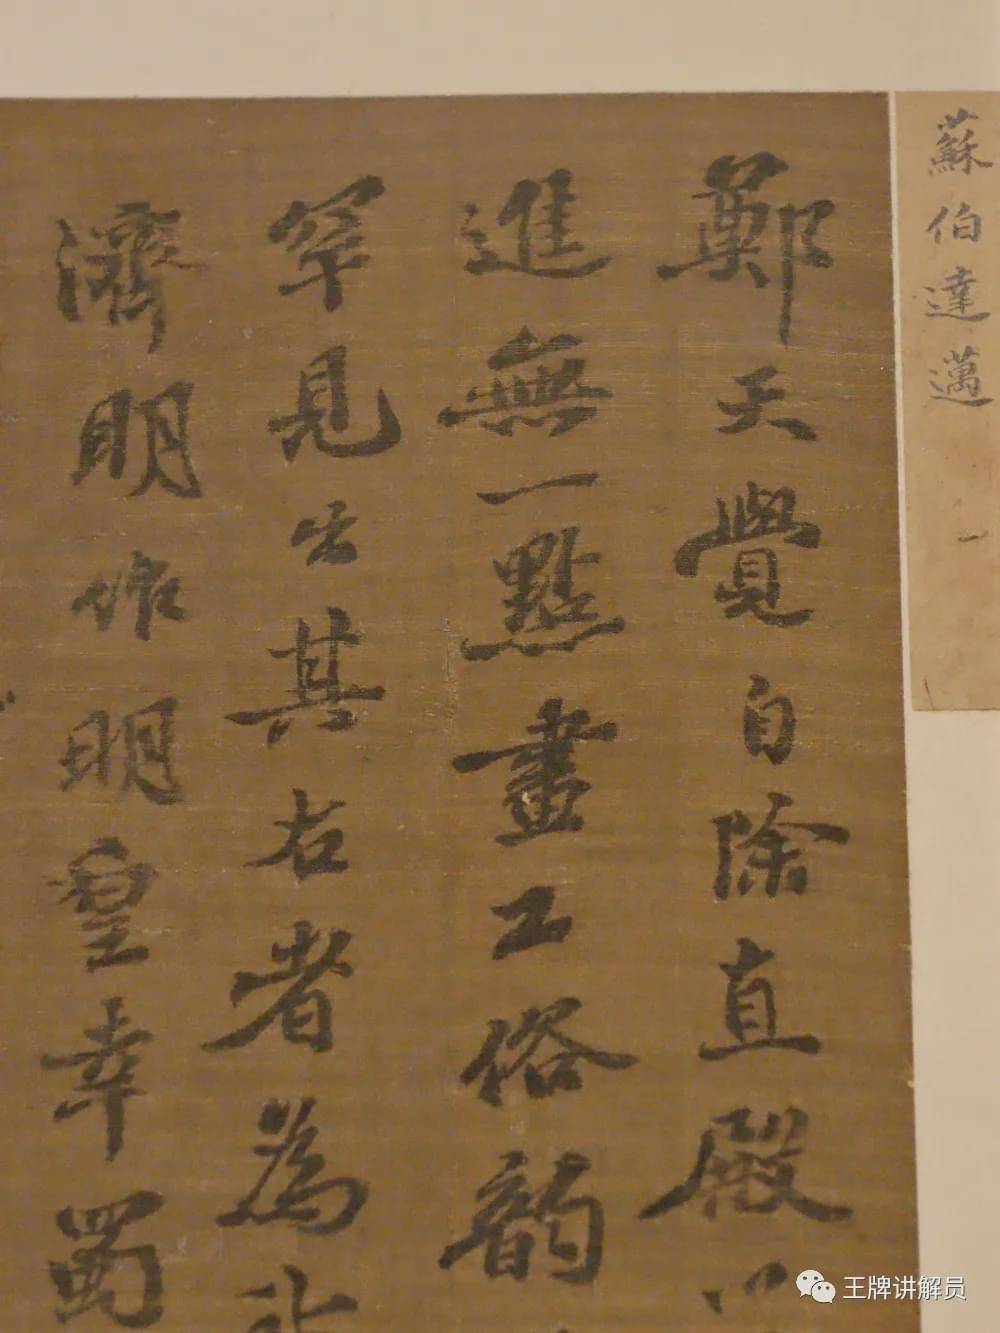 蘇伯達邁
鄭天覺自除直殿以
進無一點畫工俗韵
罕見出其右者為
濟明作明皇幸蜀
王牌讲解员